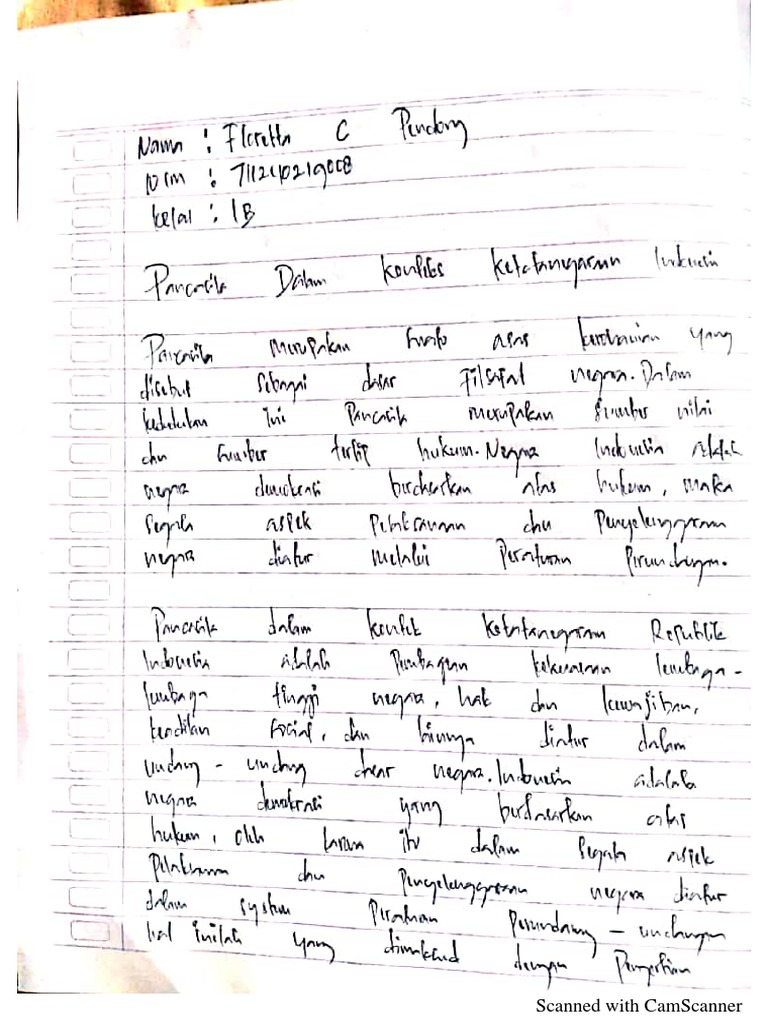 Nama : Floretta C Pendong
NIM : 711240219008
Kelas : 1B
Pancasila Dalam konteks ketatanegaraan Indonesia
Pancasila merupakan suatu asas kerohanian yang
disebut sebagai dasar Filsafat negara. Dalam
kedudukan ini Pancasila merupakan sumber nilai
dan sumber tertip hukum. Negara Indonesia adalah
negara demokrasi berdasarkan atas hukum, maka
segala aspek Pelaksanaan dan Penyelenggaraan
negara diatur melalui Peraturan Perundangan.
Pancasila dalam kontek ketatanegaraan Republik
Indonesia adalah Pembagian kekuasaan lembaga-
lembaga tinggi negara, hak dan kewajiban,
keadilan sosial, dan lainnya diatur dalam
undang - undang dasar negara. Indonesia adalah
negara demokrasi yang berdasarkan atas
hukum, oleh karena itu dalam segala aspek
Pelaksanaan dan Penyelenggaraan negara diatur
dalam system Peraturan Perundang - undangan
hal inilah yang dimaksud dengan Pengertian
Scanned with CamScanner